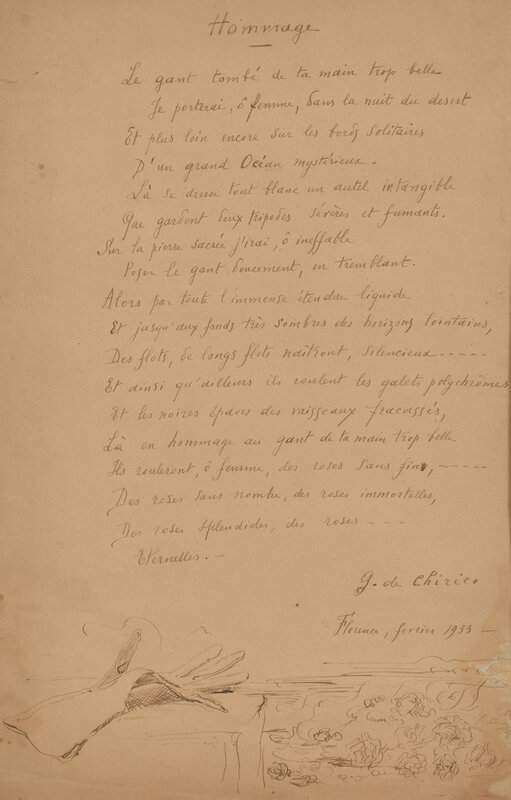 Hommage
Le gant tombé de ta main trop belle
Je porterai, ô femme, dans la nuit du desert
Et plus loin encore sur les bords solitaires
D'un grand Océan mystérieux.
Là se dresse tout blanc un autel intangible
Que gardent deux tripodes sévères et fumants.
Sur la pierre sacrée j'irai, ô ineffable
Poser le gant doucement, en tremblant.
Alors par toute l'immense étendue liquide
Et jusqu'aux fonds très sombres des horizons lointains,
Des flots, de longs flots naîtront, silencieux-----
Et ainsi qu'ailleurs ils roulent les galets polychrômes
Et les noires épaves des vaisseaux fracassés,
Là en hommage au gant de ta main trop belle
Ils rouleront, ô femme, des roses sans fin,-----
Des roses sans nombre, des roses immortelles,
Des roses splendides, des roses ---
Eternelles.—
G. de Chirico
Florence, fevrier 1933 —